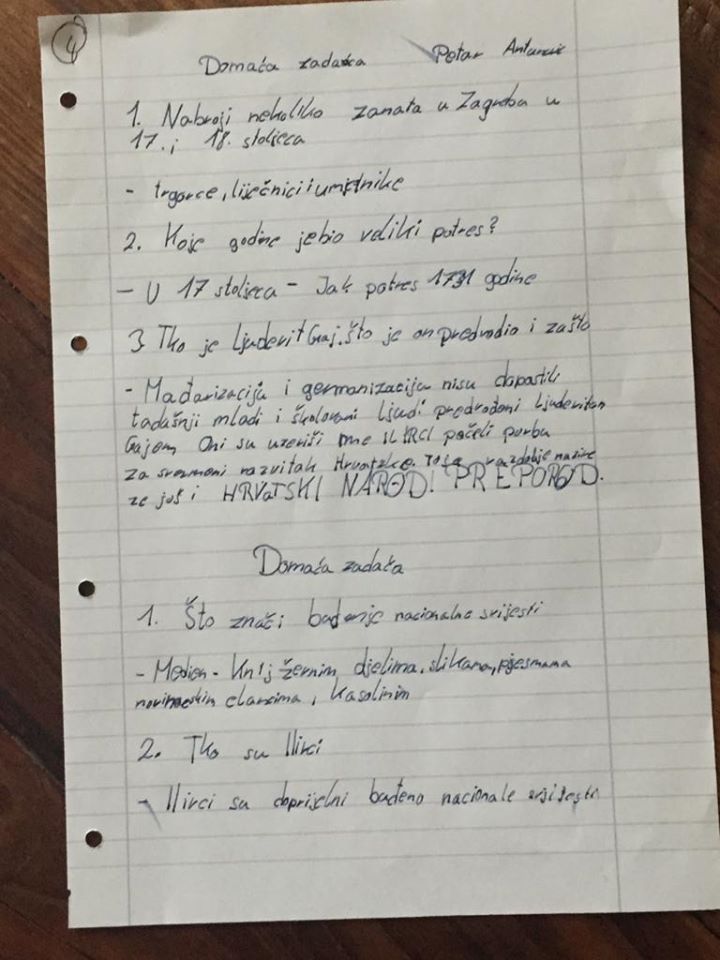 4
Domaća zadaća Petar
1. Nabroji nekoliko zanata u Zagreba u
17. i 18. stoljeća
- trgorce, liječnici i umjetnike
2. Koje godine je bio veliki potres?
- U 17 stoljeca - Jak potres 1731 godine
3 Tko je Ljudevit Gaj. što je on predvodio i zašto
- Mađarizaciju i germanizaciju nisu dopastili
tadašnji mladi i školovani ljudi predvođeni Ljudevitom
Gajem Oni su uzeviši ime počeli borbu
za razvitak Hrvatske. razdoblje nazive
ze još i HRVATSKI NARODI PREPOROD.
Domaća zadaća
1. Što znači buđenje nacionalne svijesti
- djelima, slikama, pjesmama
clancima,
2. Tko su Ilirci
- Ilirci su doprijelni buđeno nacionale svijesti